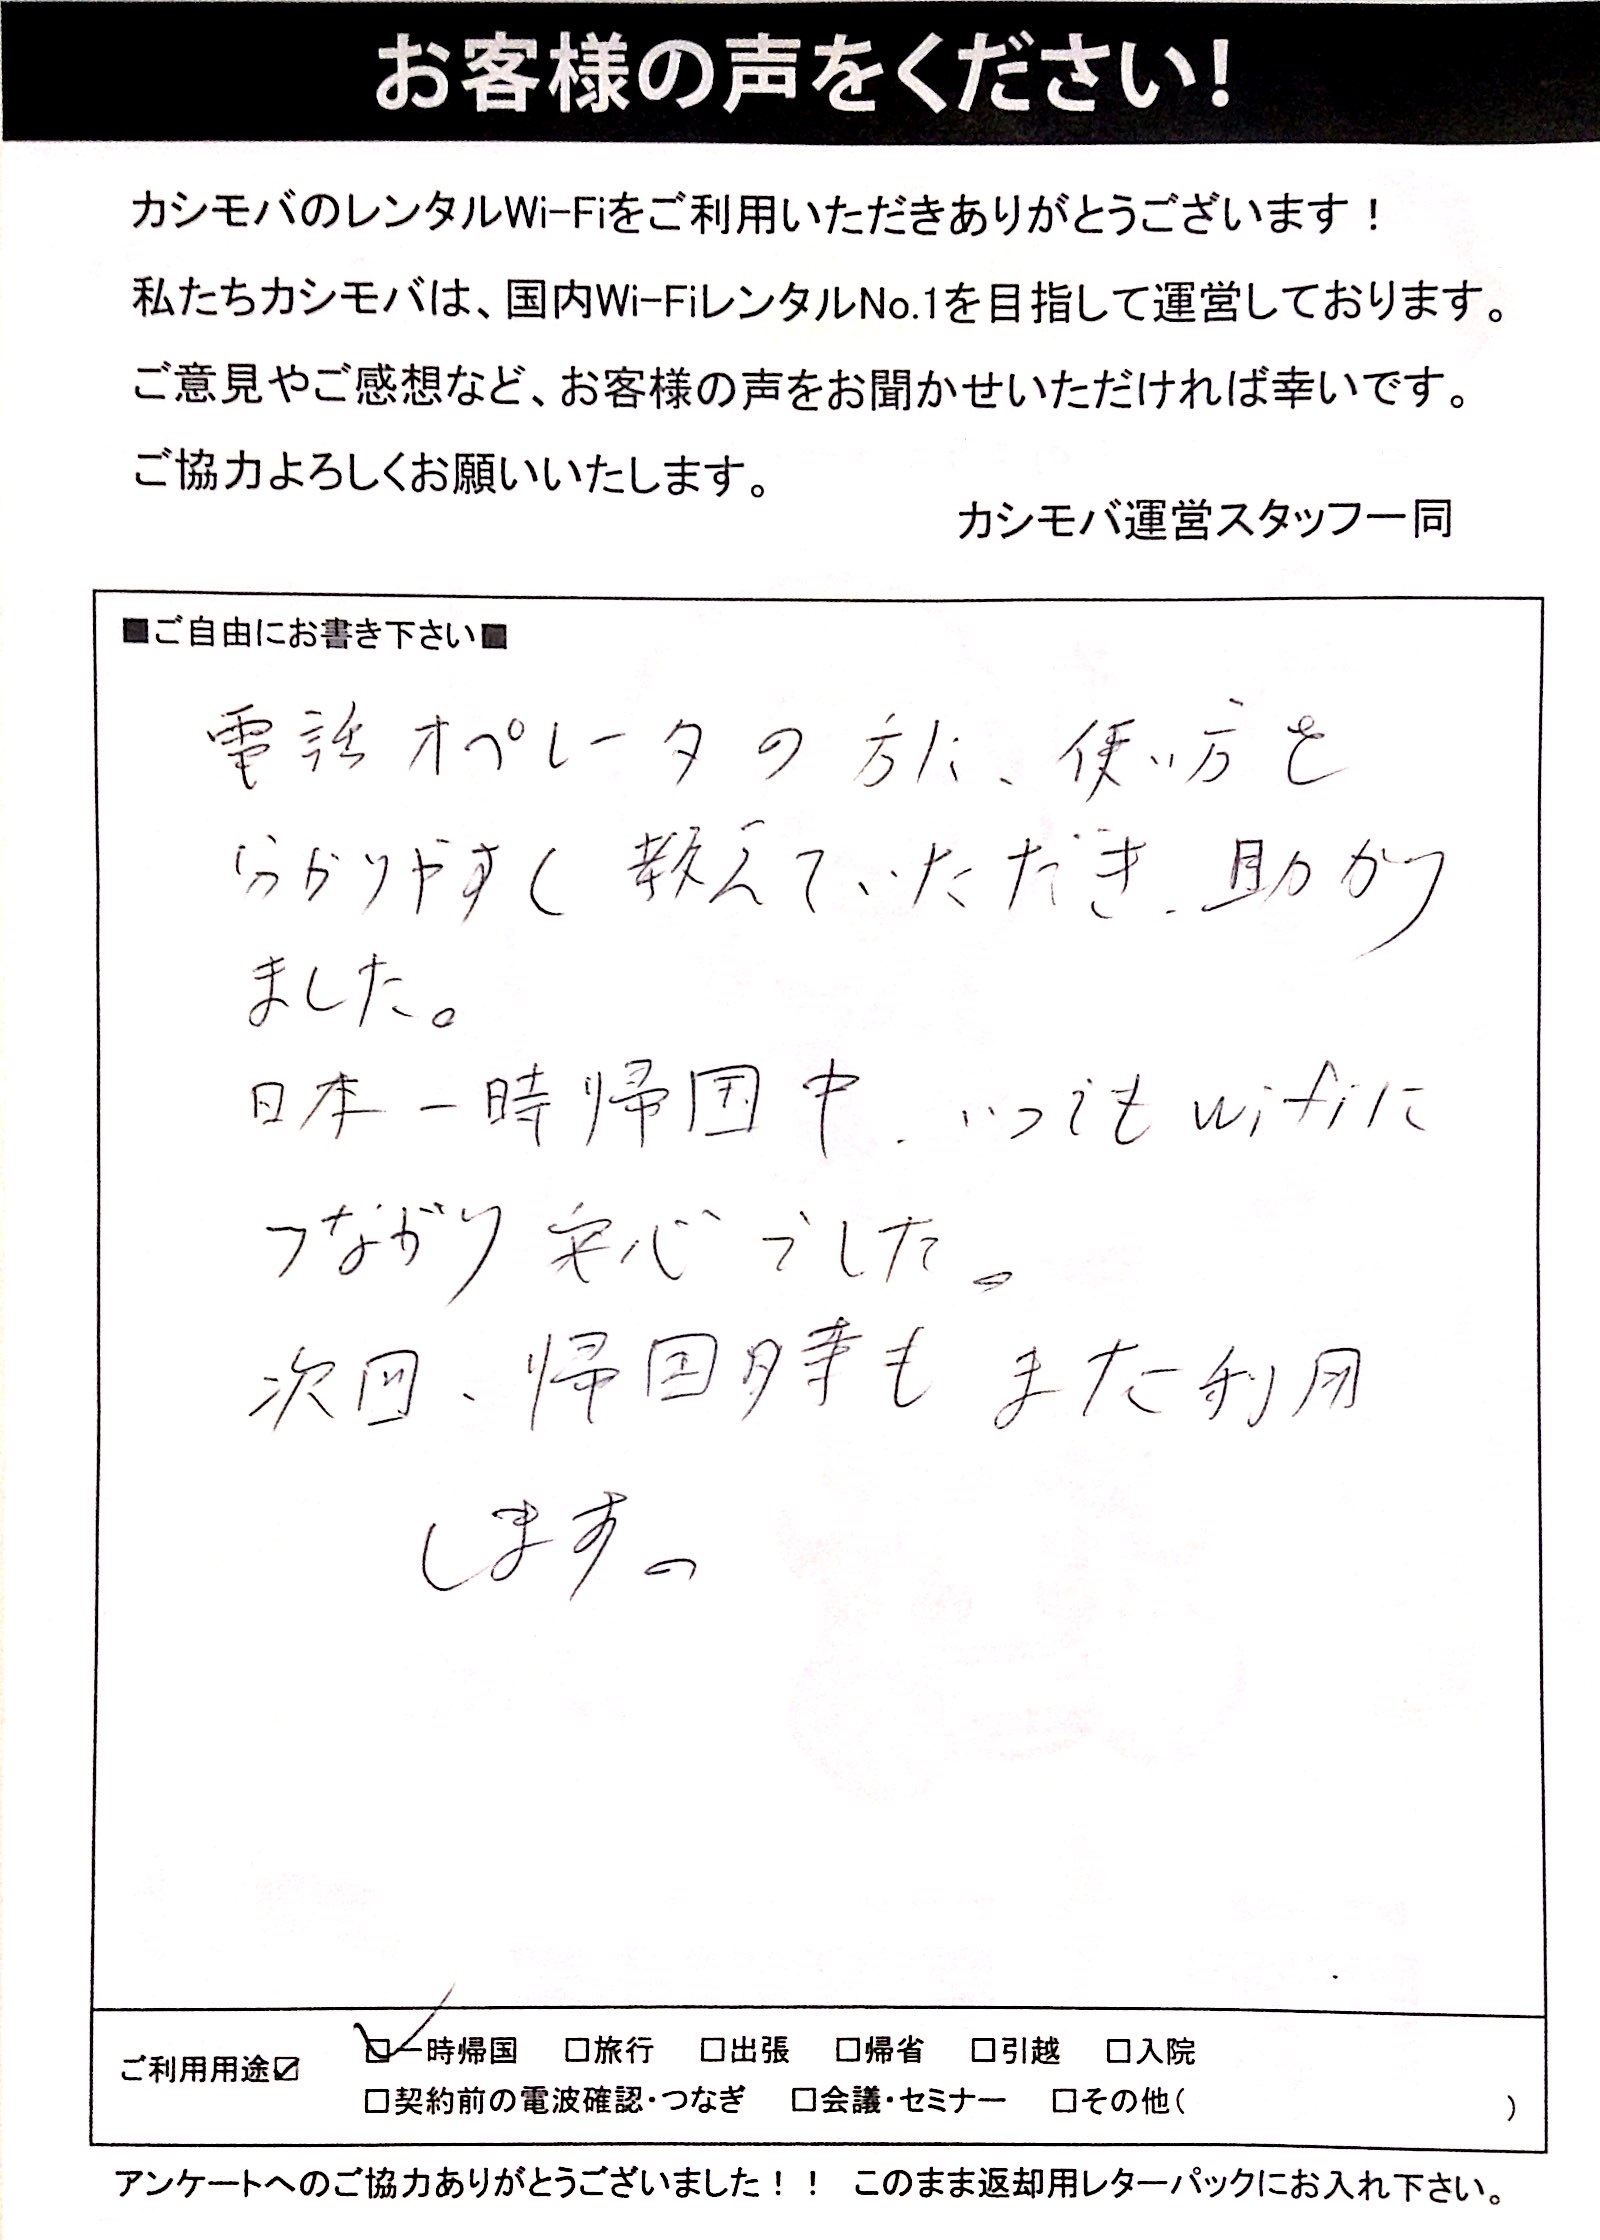 お客様の声をください!
カシモバのレンタルWi-Fiをご利用いただきありがとうございます！
私たちカシモバは、国内Wi-FiレンタルNo.1を目指して運営しております。
ご意見やご感想など、お客様の声をお聞かせいただければ幸いです。
ご協力よろしくお願いいたします。
カシモバ運営スタッフ一同
■ご自由にお書き下さい■
電話オペレータの方に、使い方を
分かりやすく教えていただき、助かり
ました。
日本一時帰国中、いつでもwifiに
つながり安心でした。
次回、帰国時もまた利用
します。
ご利用用途☑ ☑一時帰国 □旅行 □出張 □帰省 □引越 □入院
□契約前の電波確認・つなぎ □会議・セミナー □その他( )
アンケートへのご協力ありがとうございました！！ このまま返却用レターパックにお入れ下さい。